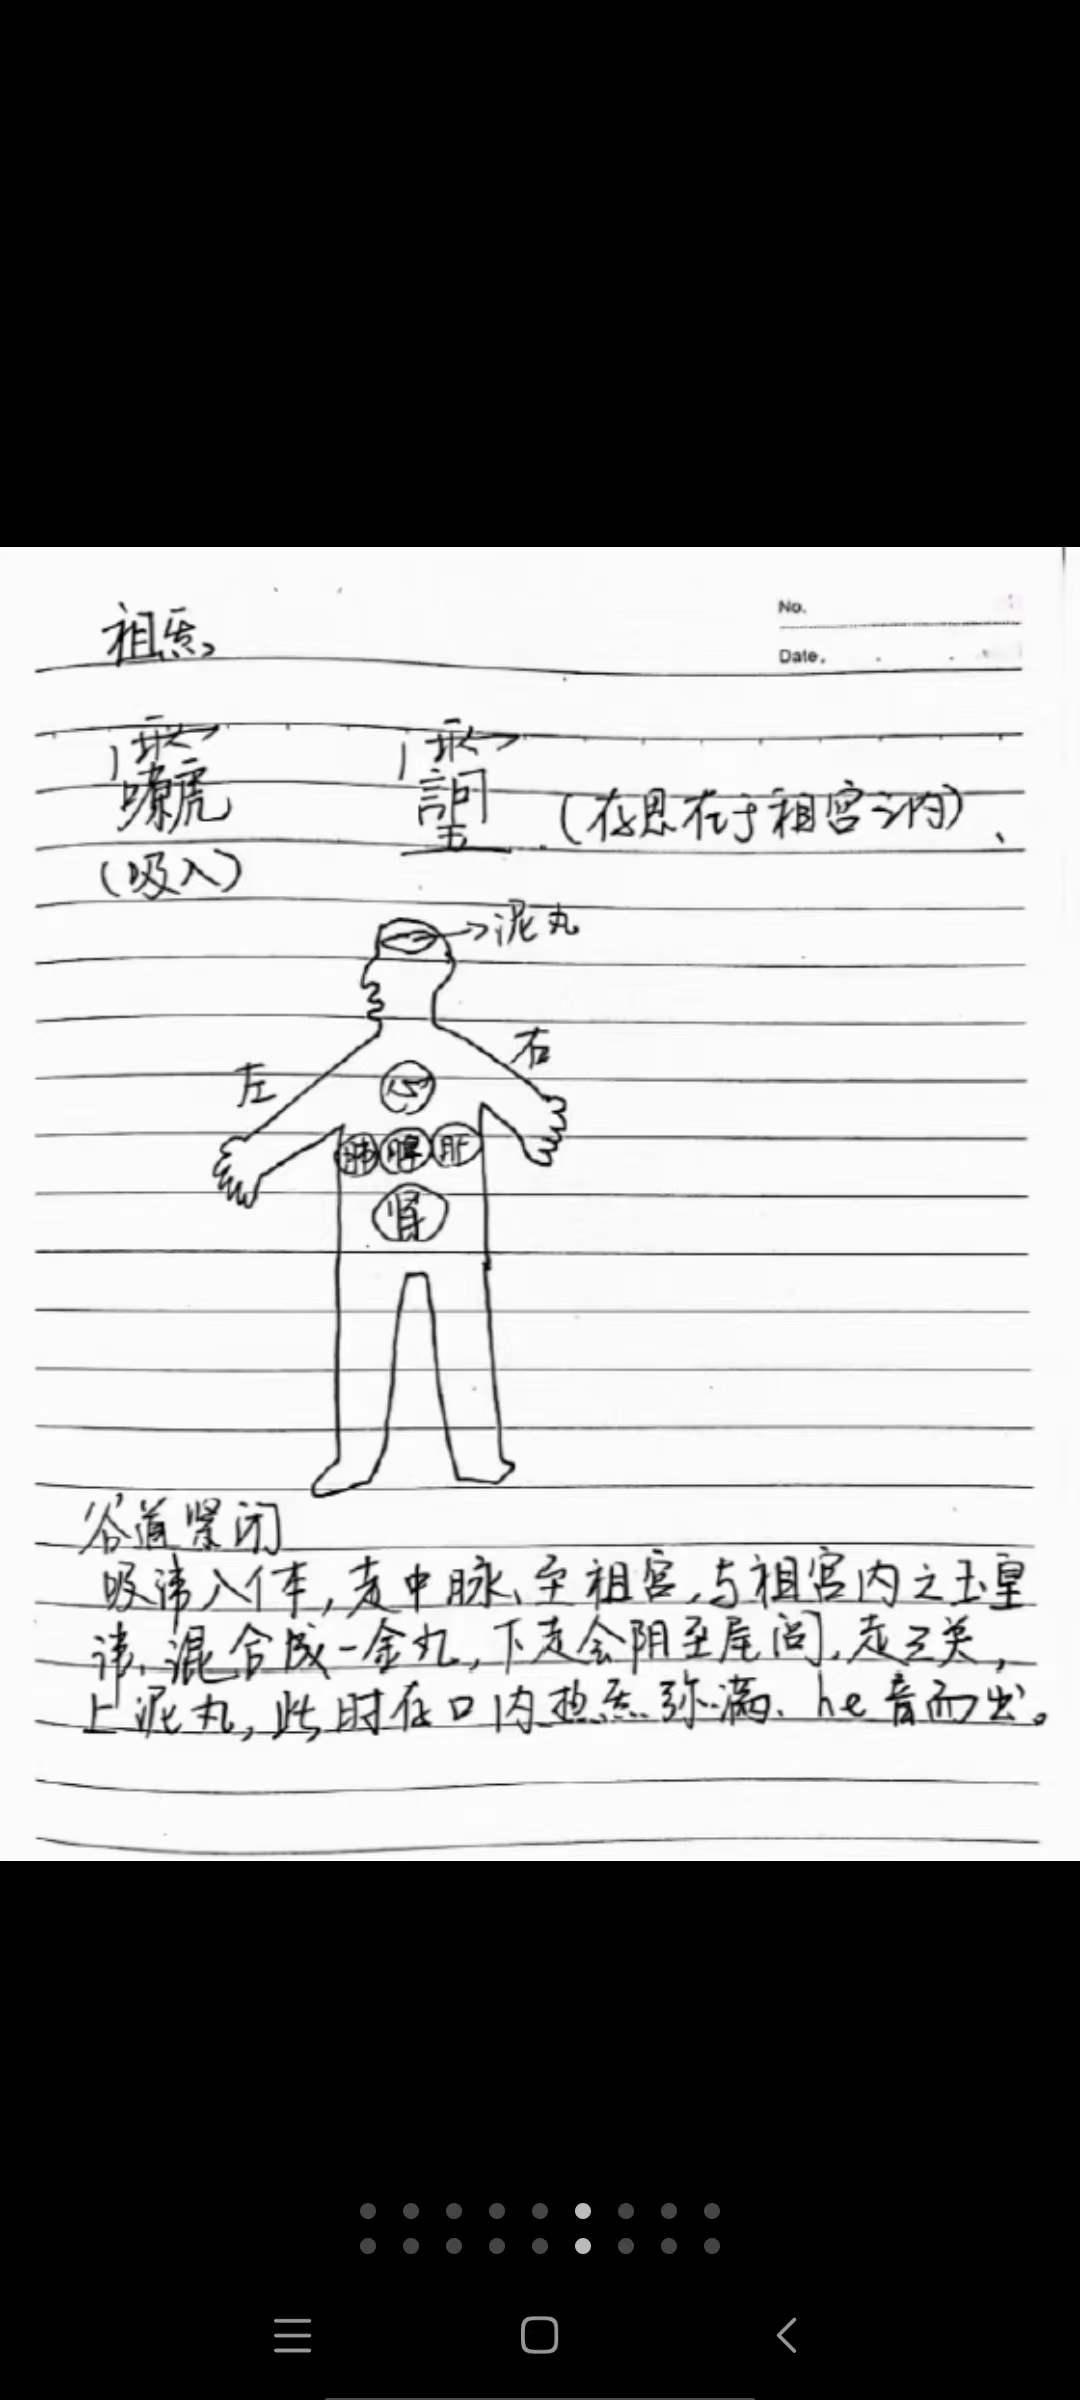 祖炁
No.
Date.
嘘
(存思在于祖宫之内)、
(吸入)
泥丸
左 右
心
肺 脾 肝
肾
谷道紧闭
吸讳入体,走中脉、至祖宫,与祖宫内之玉皇
讳、混合成一金丸,下走会阴至尾闾,走三关,
上泥丸,此时存口内热炁弥满、he音而出。